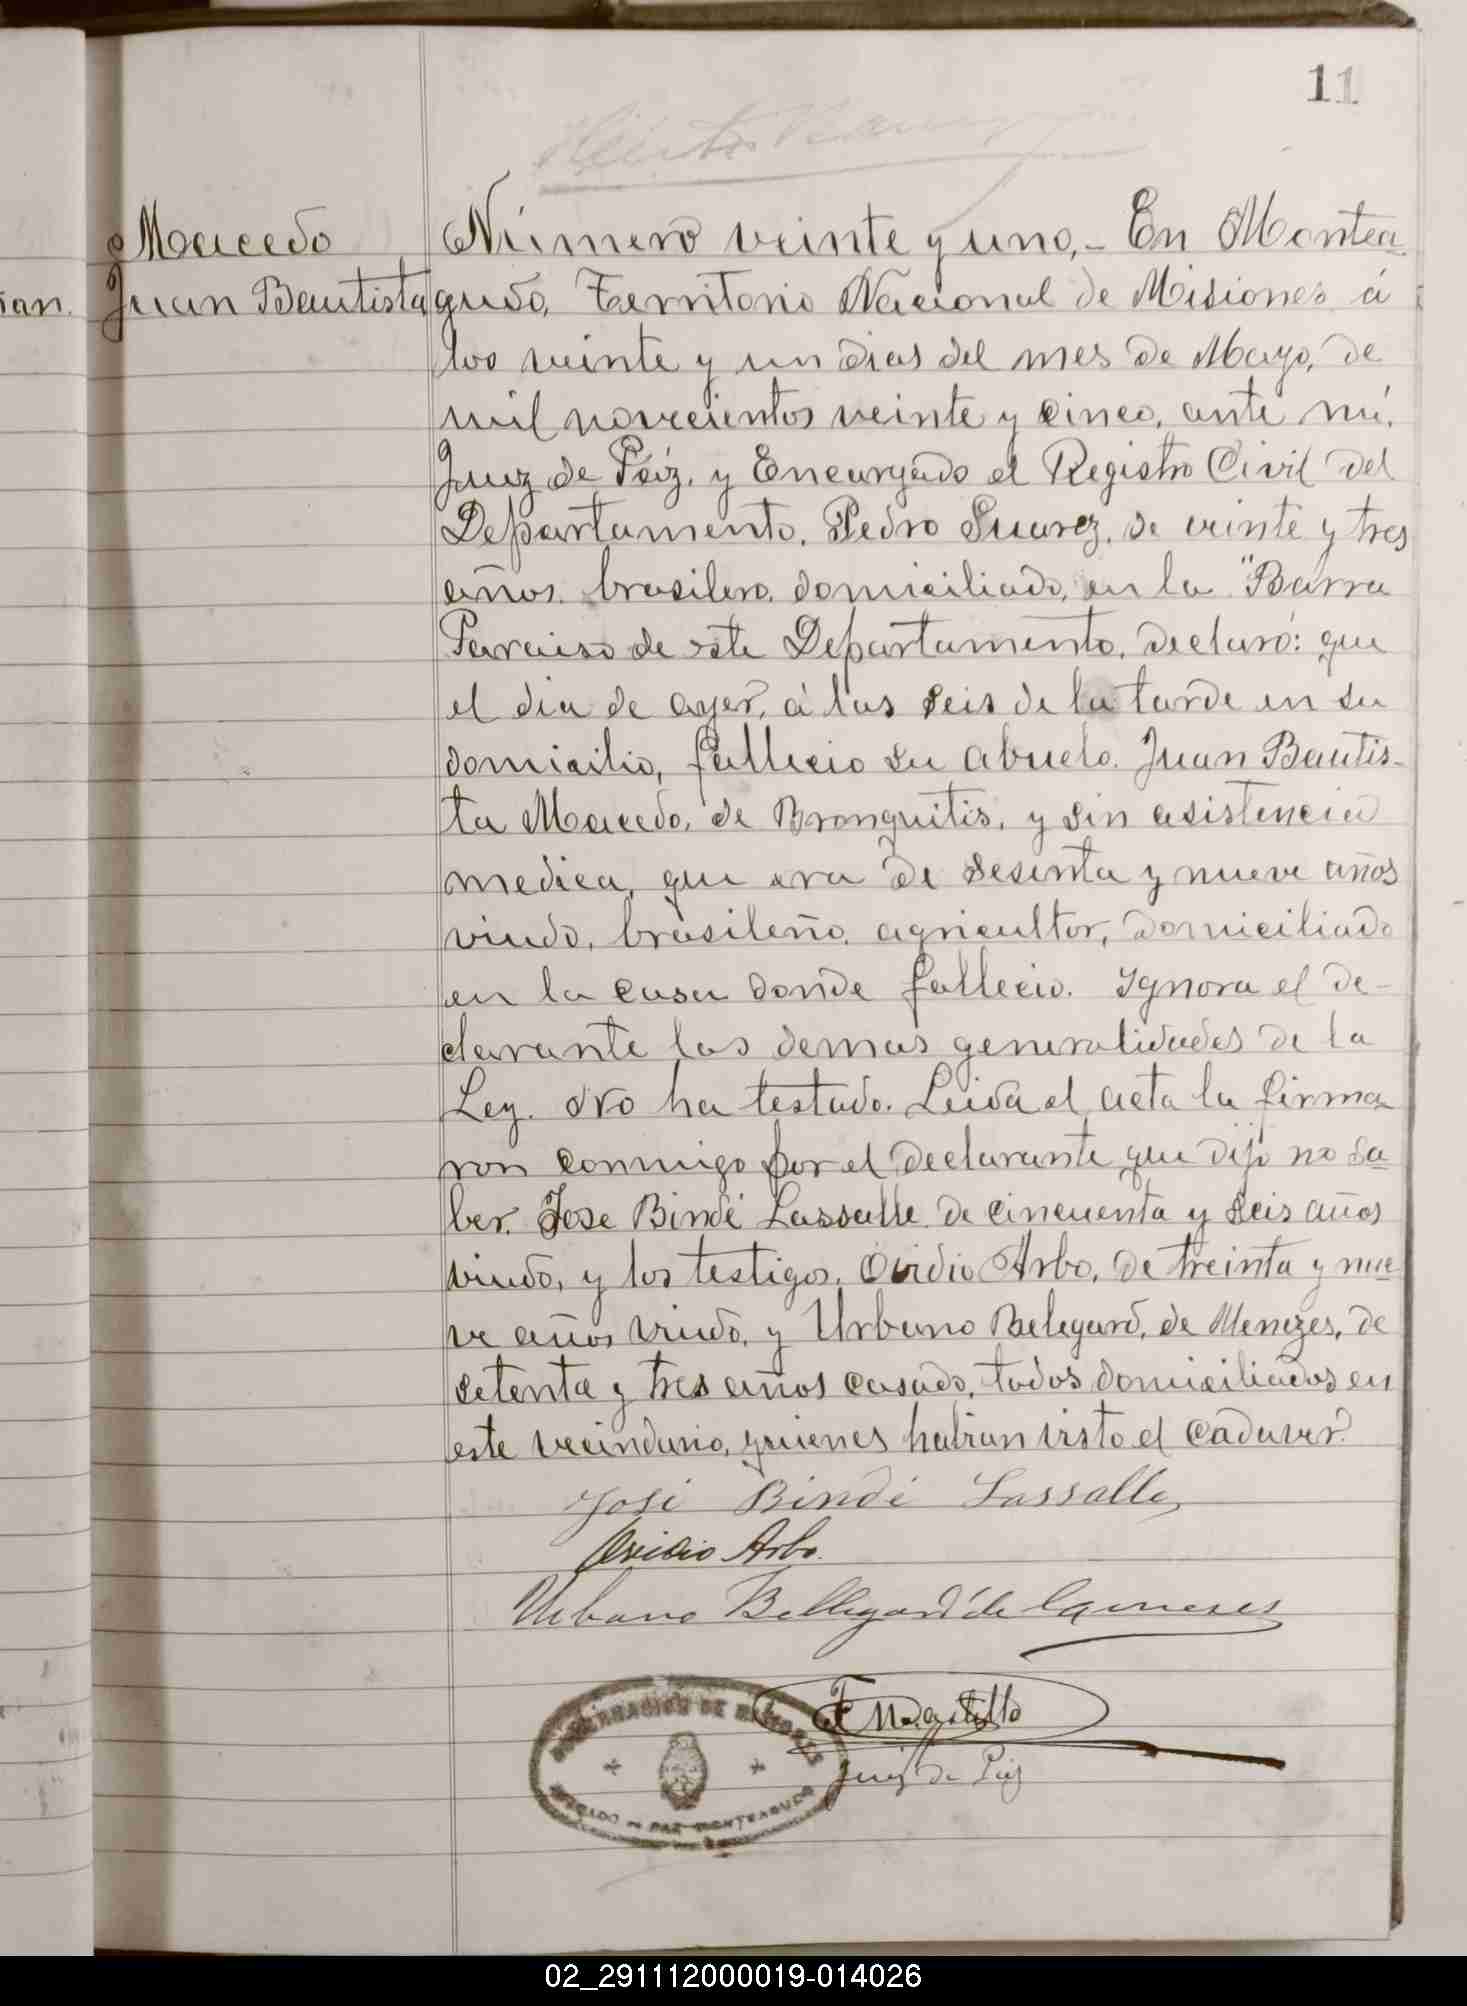 11
Macedo
Juan Bautista
Número veinte y uno,- En Montea
gudo, Territorio Nacional de Misiones á
los veinte y un dias del mes de Mayo, de
mil novecientos veinte y cinco, ante mí,
Juez de Páz, y Encargado el Registro Civil del
Departamento, Pedro Suarez, de veinte y tres
años, brasilero, domiciliado, en la "Barra
Paraiso de este Departamento, declaró: que
el dia de ayer, á las seis de la tarde en su
domicilio, fallecio su abuelo. Juan Bautis-
ta Macedo, de Bronquitis, y sin asistencia
medica, que era de sesenta y nueve años
viudo, brasileño, agricultor, domiciliado
en la casa donde fallecio. Ignora el de-
clarante las demas generalidades de la
Ley. No ha testado. Leida el acta la firma
ron conmigo por el declarante que dijo no sa
ber. Jose Bindé Lassalle de cincuenta y seis años
viudo, y los testigos, Ovidio Arbo, de treinta y nue
ve años viudo, y Urbano Belegard, de Menezes, de
setenta y tres años casado, todos domiciliados en
este vecindario, quienes habian visto el cadaver.
José Bindé Lassalle,
Ovidio Arbo.
Urbano Bellegard de
Juez de Paz
GOBERNACION DE MISIONES
JUZGADO DE PAZ MONTEAGUDO
ian.
02_291112000019-014026